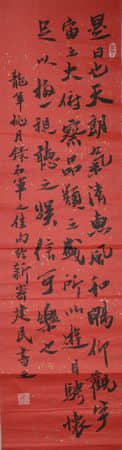 是日也天朗氣清惠風和暢仰觀宇
宙之大俯察品類之盛所以遊目騁懷
足以極視聽之娛信可樂也
龍年桃月錄右軍之佳句於新齋建民書之